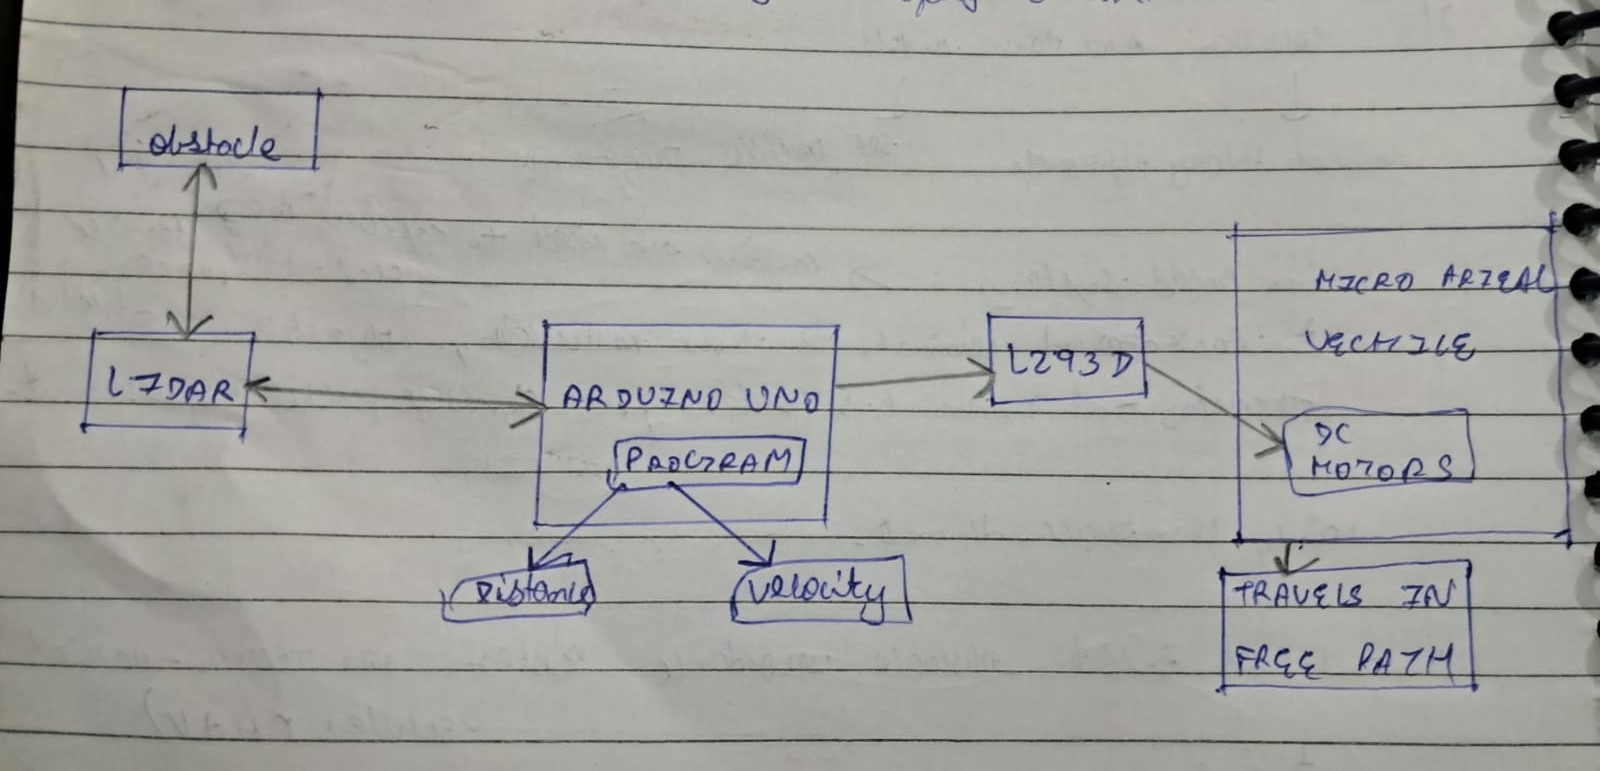 obstacle
LIDAR
ARDUINO UNO
PROGRAM
Distance
Velocity
L293D
MICRO ARIEAL
VECHILE
DC
MOTORS
TRAVELS IN
FREE PATH